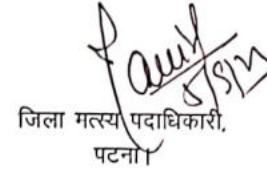 जिला मत्स्य पदाधिकारी,
पटना।